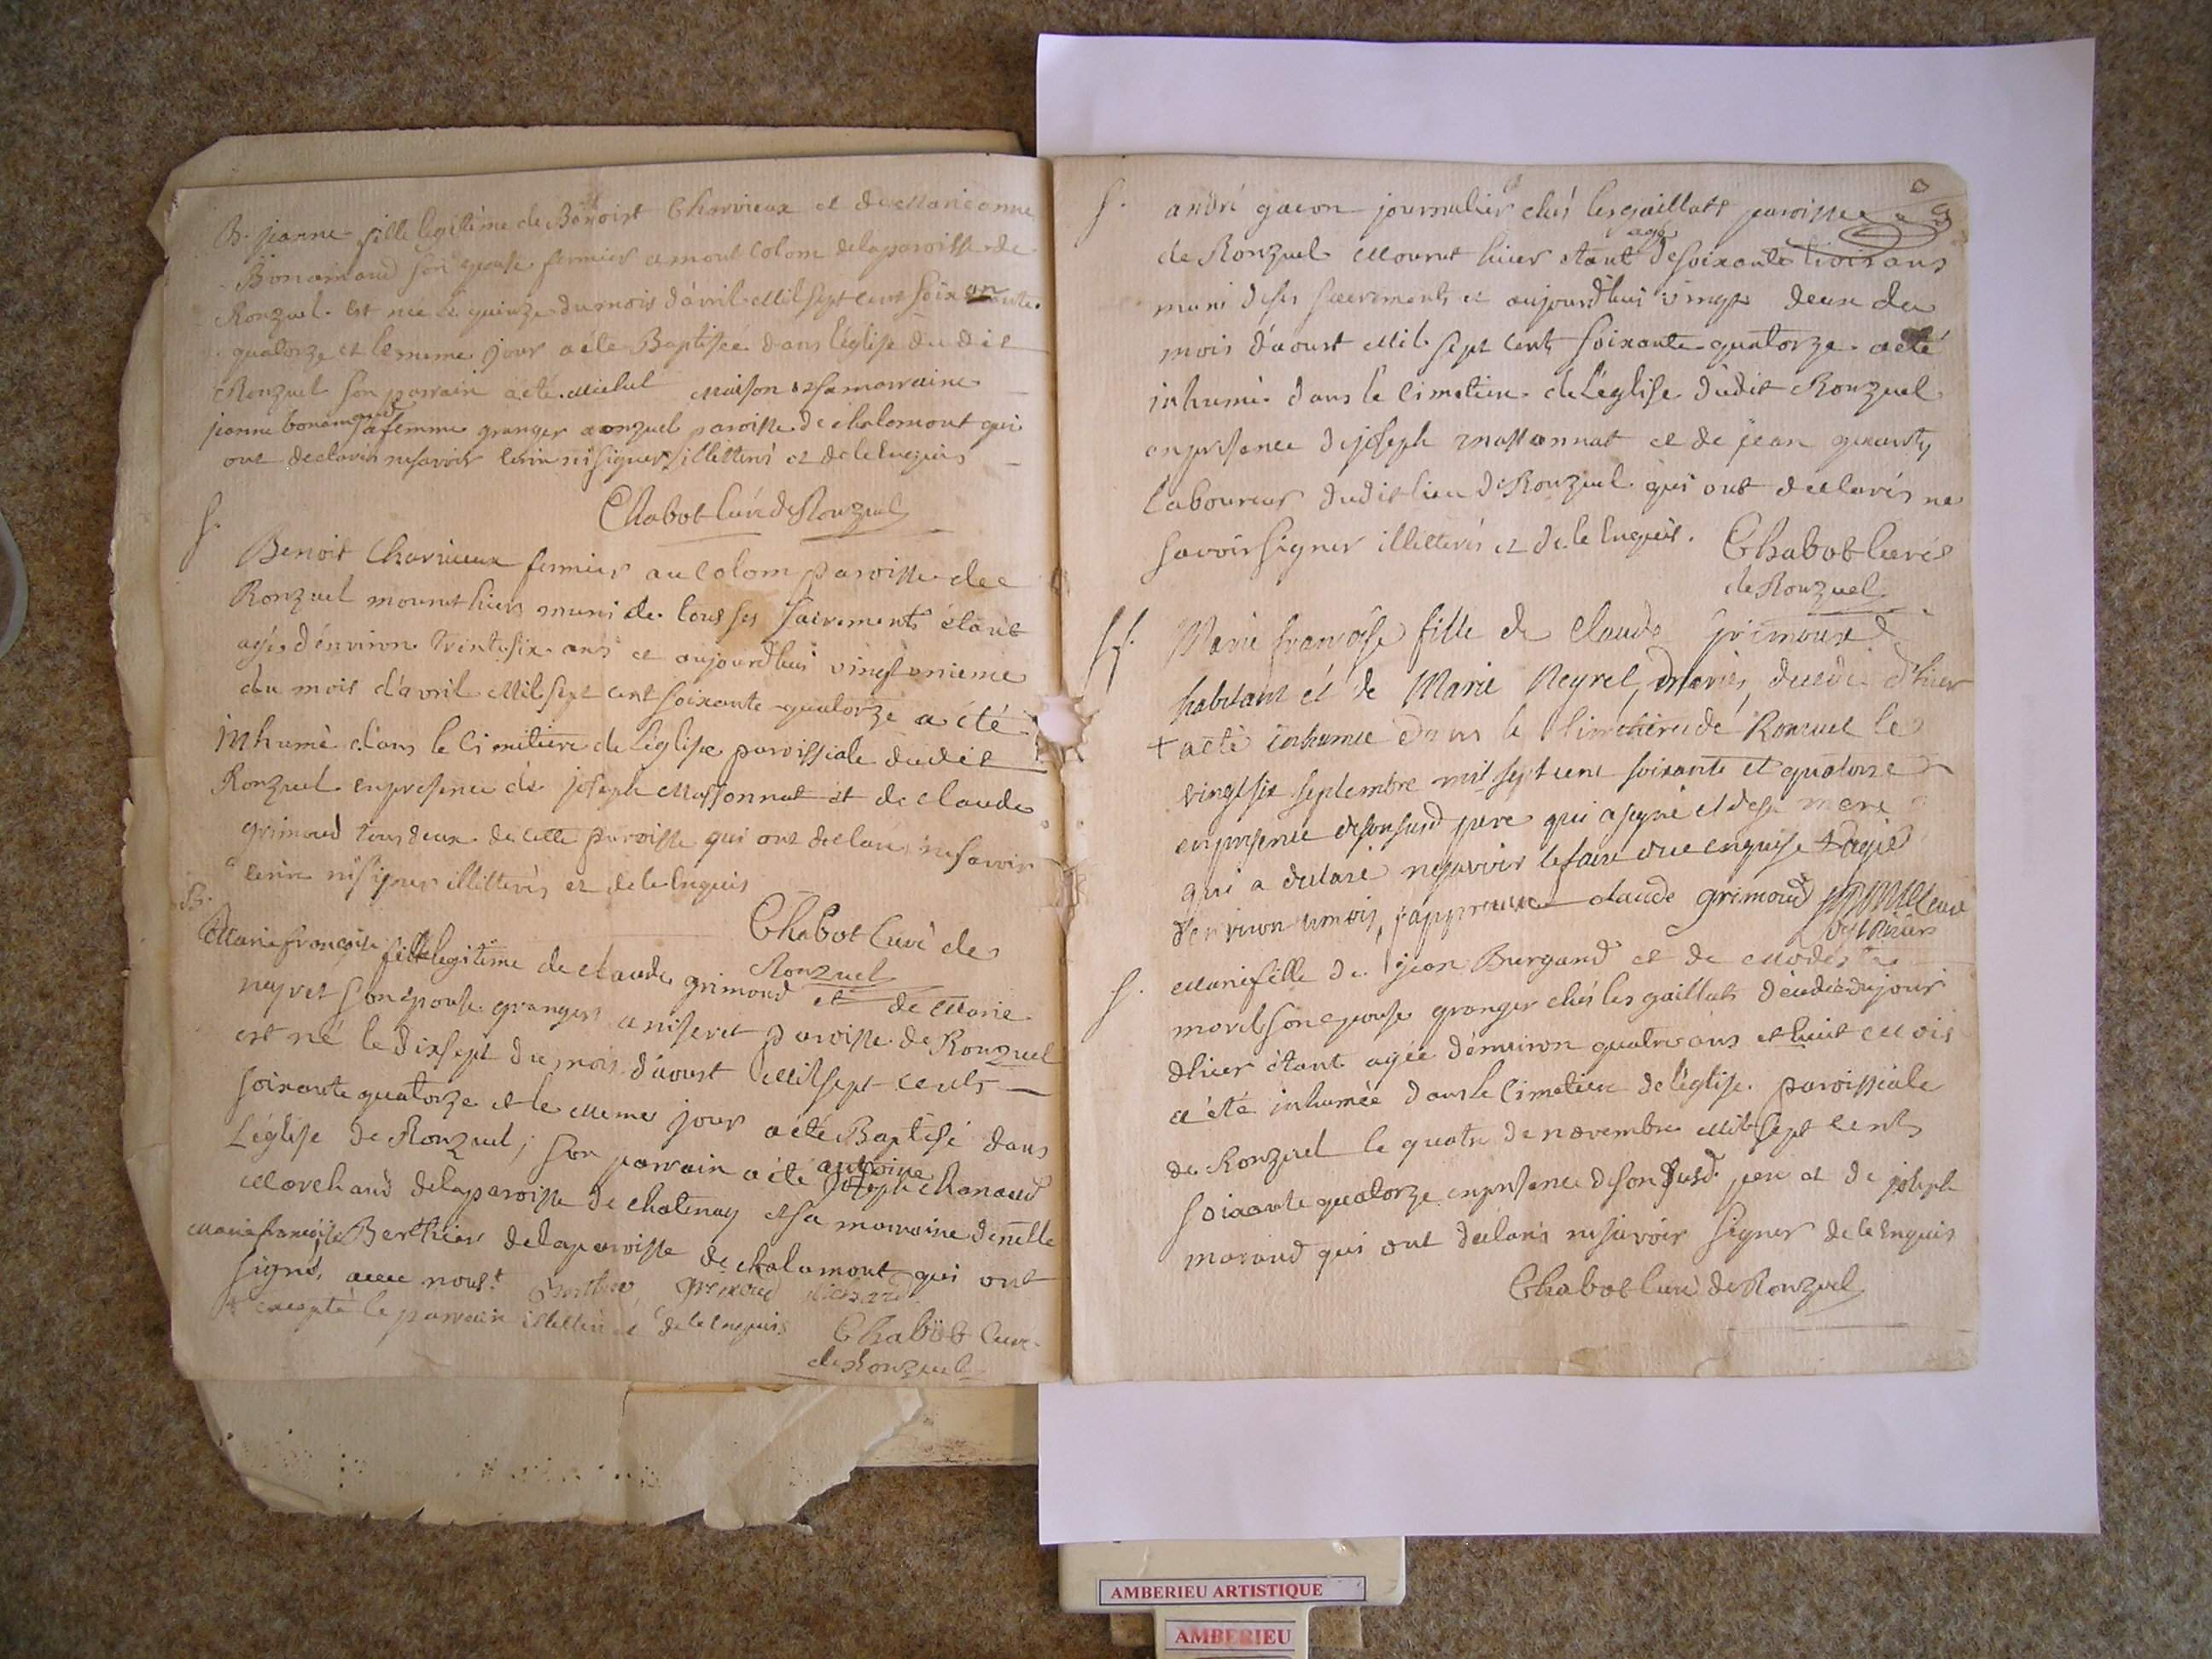 B. jeanne fille legitime de Benoist Charvieux et de Marieanne
Bonamaud son epouse fermier a mont Colom de la paroisse de
Ronzuel est née le quinze du mois d'avril Mil sept cent soixante
quatorze et le meme jour a été Baptisée dans l'église du dit
Ronzuel son parrain a été Michel Maison et sa marraine
jeanne bonamaud sa femme granger a onzuel paroisse de chalamont qui
ont declarés ne savoir ecrire ni signer illitterés et de ce enquis
Chabot Curé de Ronzuel
S.
Benoit Charvieux fermier au Colom paroisse de
Ronzuel mourut hier muni de tous ses sacrements étant
agé d'environ trente six ans et aujourd'hui vingt unieme
du mois d'avril Mil sept cent soixante quatorze a été
inhumé dans le cimetiere de l'église paroissiale dudit
Ronzuel en presence de joseph Massonnat et de claude
grimaud tous deux de cette paroisse qui ont declaré ne savoir
ecrire ni signer illitterés et de ce enquis
B. Chabot Curé de
Ronzuel
Marie françoise fille legitime de claude grimoud et de Marie
neyret son epouse granger a niseret paroisse de Ronzuel
est né le dix sept du mois d'aoust Mil sept cents
soixante quatorze et le meme jour a été Baptisé dans
L'église de Ronzuel; son parrain a été antoine joseph chanaud
Marchand de la paroisse de chatenay et sa marraine demelle
Marie françoise Berthier de la paroisse de chalamont qui ont
signé, avec nous
excepté le parrain illitteré et de ce enquis Chabot Curé
de Ronzuel
S. andré gacon journalier chés les gaillats paroisse
de Ronzuel Mourut hier etant agé de soixante trois ans
muni de ses sacrements et aujourd'hui vingt deux du
mois d'aoust Mil sept cent soixante quatorze a été
inhumé dans le cimetiere de l'église dudit Ronzuel
en presence de joseph massonnat et de jean
laboureur dudit lieu de Ronzuel qui ont declarés ne
savoir signer illitterés et de ce enquis. Chabot Curé
de Ronzuel
Marie françoise fille de Claude grimoud
habitant et de Marie Neyret, mariés, decedée d'hier
+ a été inhumée dans le cimetiere de Ronzuel le
vingt six septembre mil sept cent soixante et quatorze
en presence de son susd pere qui a signé et de sa mere
qui a declaré ne savoir le faire de ce enquise + agée
d'environ un mois, j'approuve claude grimoud
S. Marie fille de jean Burgaud et de Modeste
morel son epouse granger chés les gaillats décédée du jour
d'hier étant agée d'environ quatre ans et huit Mois
a été inhumée dans le cimetiere de l'église paroissiale
de Ronzuel le quatre de novembre Mil sept cents
soixante quatorze en presence de son susd. pere et de joseph
moraud qui ont declarés ne savoir signer de ce enquis
Chabot Curé de Ronzuel
AMBERIEU ARTISTIQUE
AMBERIEU